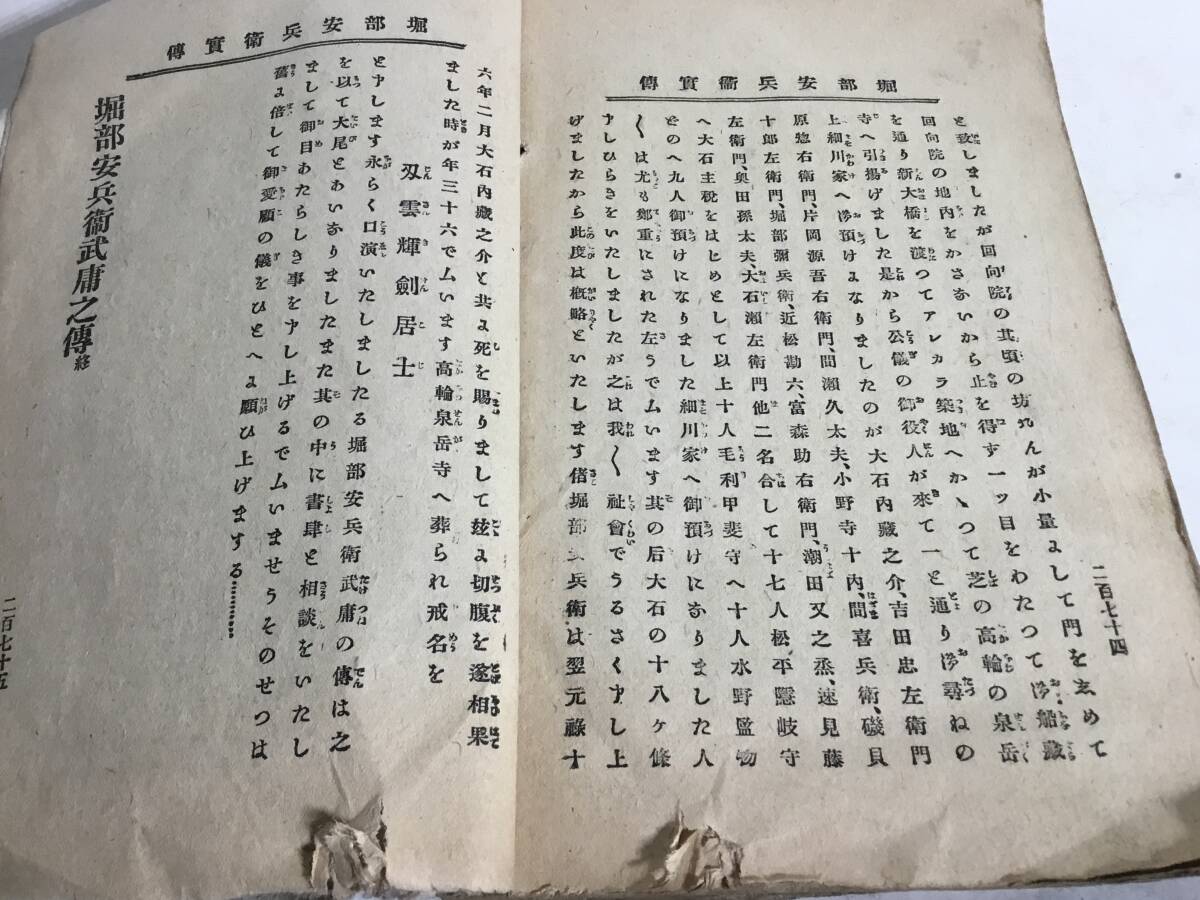 堀部安兵衞實傳
と致しましたが回向院の其頃の坊さんが小量よして門を玄めて
回向院の地内をかさないから止を得ず一ッ目をわたつて御船藏
を通り新大橋を渡つてアレカラ築地へかゝつて芝の高輪の泉岳
寺へ引揚げました是から公儀の御役人が來て一と通り御尋ねの
上細川家へ御預けよなりましたのが大石內藏之介、吉田忠左衛門
原惣右衛門、片岡源吾右衛門、間瀨久太夫、小野寺十內、間喜兵衛、磯貝
十郎左衛門、堀部彌兵衛、近松勘六、富森助右衛門、潮田又之丞、速見藤
左衛門、奥田孫太夫、大石瀨左衛門他二名合して十七人松平隱岐守
へ大石主稅をはじめとして以上十人毛利甲斐守へ十人水野監物
どのへ九人御預けになりました細川家へ御預けになりました人
〱は尤も鄭重にされた左うでムいます其の后大石の十八ヶ條
申しひらきをいたしましたが之は我〱社會でうるさく申し上
げましたから此度は概略といたします偖堀部安兵衛は翌元祿十
二百七十四
堀部安兵衞實傳
六年二月大石內藏之介と共よ死を賜りまして玆よ切腹を遂相果
ました時が年三十六でムいます高輪泉岳寺へ葬られ戒名を
刄雲輝劍居士
と申します永らく口演いたしましたる堀部安兵衛武庸の傳は之
を以て大尾とあいなりましたまた其の中に書肆と相談をいたし
まして御目あたらしき事を申し上げるでムいませうそのせつは
舊よ倍して御愛顧の儀をひとへよ願ひ上げまする…………
堀部安兵衞武庸之傳終
二百七十五